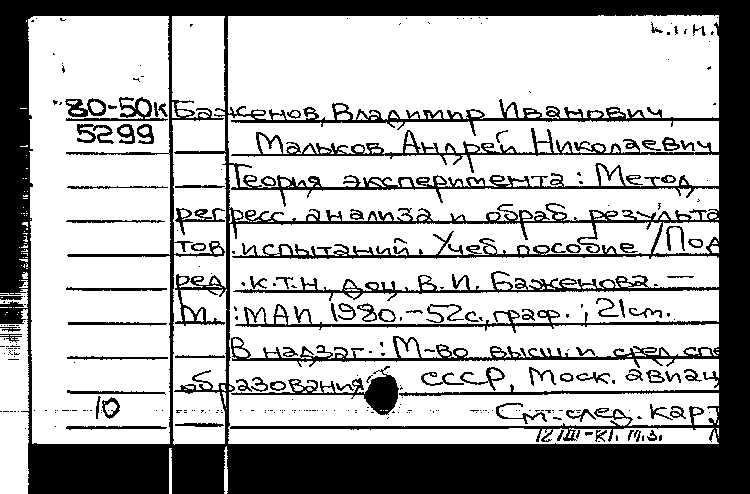 к.т.н.
80-50к Баженов, Владимир Иванович,
5299 Мальков, Андрей Николаевич
Теория эксперимента: Метод
регресс. анализа и обраб. результа
тов испытаний. Учеб. пособие / Под
ред. к.т.н., доц. В. И. Баженова. —
М. : МАИ, 1980. - 52с., граф. ; 21см.
В надзаг.: М-во высш. и сред. спе
образования СССР, Моск. авиац
10 См. след. карт
12 III-81. М.З.